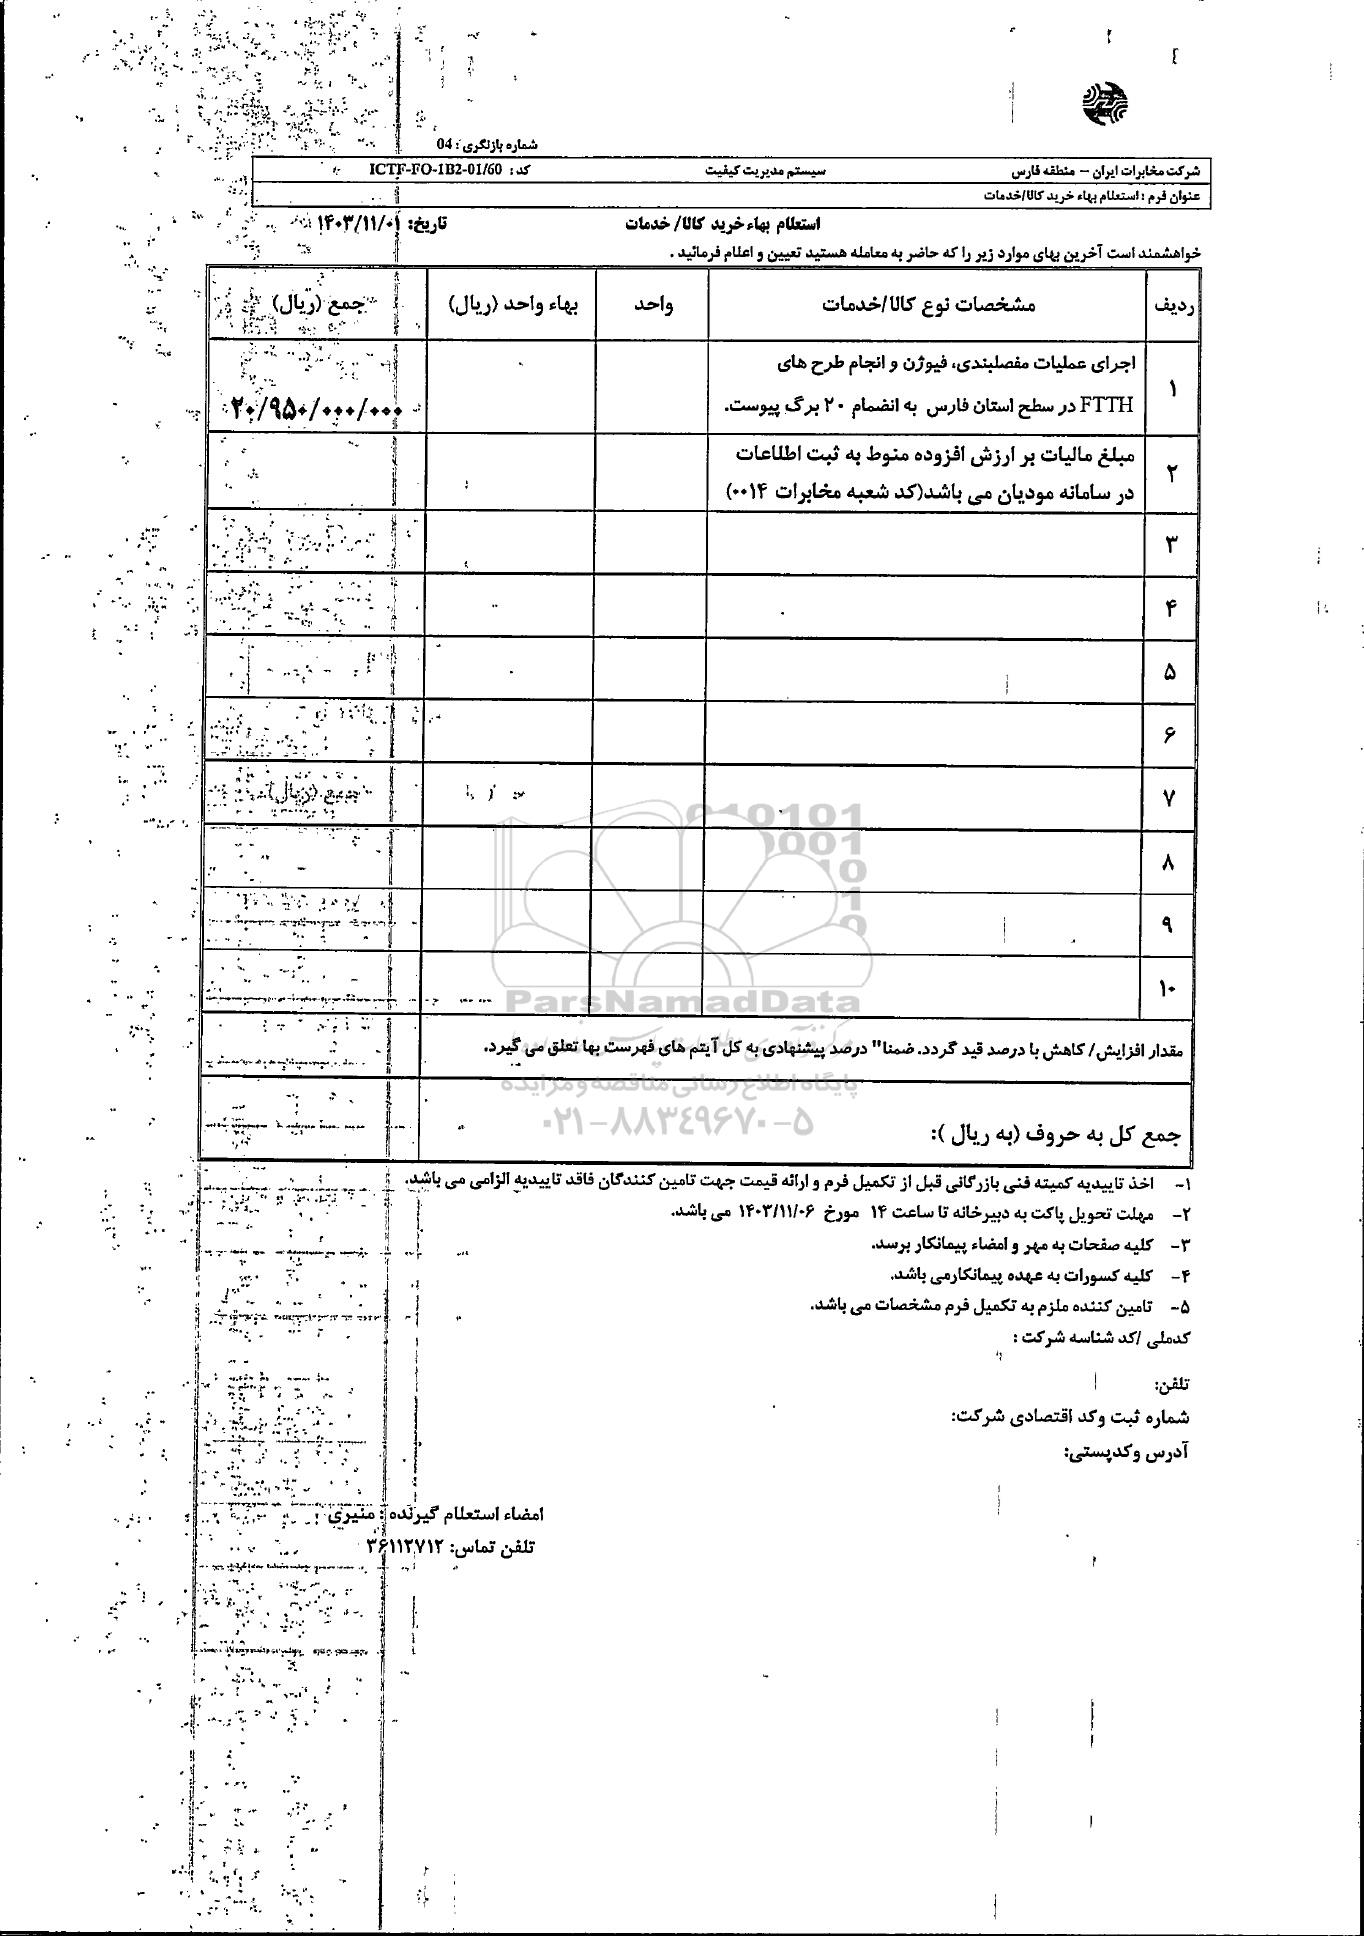 شماره بازنگری : 04
شرکت مخابرات ایران – منطقه فارس سیستم مدیریت کیفیت کد : ICTF-FO-1B2-01/60
عنوان فرم : استعلام بهاء خرید کالا/خدمات
استعلام بهاء خرید کالا/ خدمات تاریخ: ۱۴۰۳/۱۱/۰۱
خواهشمند است آخرین بهای موارد زیر را که حاضر به معامله هستید تعیین و اعلام فرمائید .
ردیف مشخصات نوع کالا/خدمات واحد بهاء واحد (ریال) جمع (ریال)
۱ اجرای عملیات مفصلبندی، فیوژن و انجام طرح های
FTTH در سطح استان فارس به انضمام ۲۰ برگ پیوست. ۲۰/۹۵۰/۰۰۰/۰۰۰
۲ مبلغ مالیات بر ارزش افزوده منوط به ثبت اطلاعات
در سامانه مودیان می باشد(کد شعبه مخابرات ۰۰۱۴)
۳
۴
۵
۶
۷ جمع (ریال)
۸
۹
۱۰
ParsNamadData
مقدار افزایش/ کاهش با درصد قید گردد. ضمنا" درصد پیشنهادی به کل آیتم های فهرست بها تعلق می گیرد.
پایگاه اطلاع رسانی مناقصه و مزایده
۰۲۱-۸۸۳۴۹۶۷۰-۵
جمع کل به حروف (به ریال ):
۱- اخذ تاییدیه کمیته فنی بازرگانی قبل از تکمیل فرم و ارائه قیمت جهت تامین کنندگان فاقد تاییدیه الزامی می باشد.
۲- مهلت تحویل پاکت به دبیرخانه تا ساعت ۱۴ مورخ ۱۴۰۳/۱۱/۰۶ می باشد.
۳- کلیه صفحات به مهر و امضاء پیمانکار برسد.
۴- کلیه کسورات به عهده پیمانکارمی باشد.
۵- تامین کننده ملزم به تکمیل فرم مشخصات می باشد.
کدملی /کد شناسه شرکت :
تلفن:
شماره ثبت وکد اقتصادی شرکت:
آدرس وکدپستی:
امضاء استعلام گیرنده : منیری
تلفن تماس: ۳۶۱۱۲۷۱۲